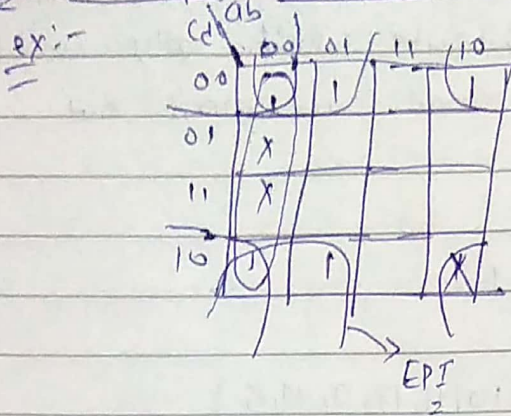 ex:-
cd ab
00 01 11 10
00 1 1 1
01 X
11 X
10 1 1 X
EPI
2